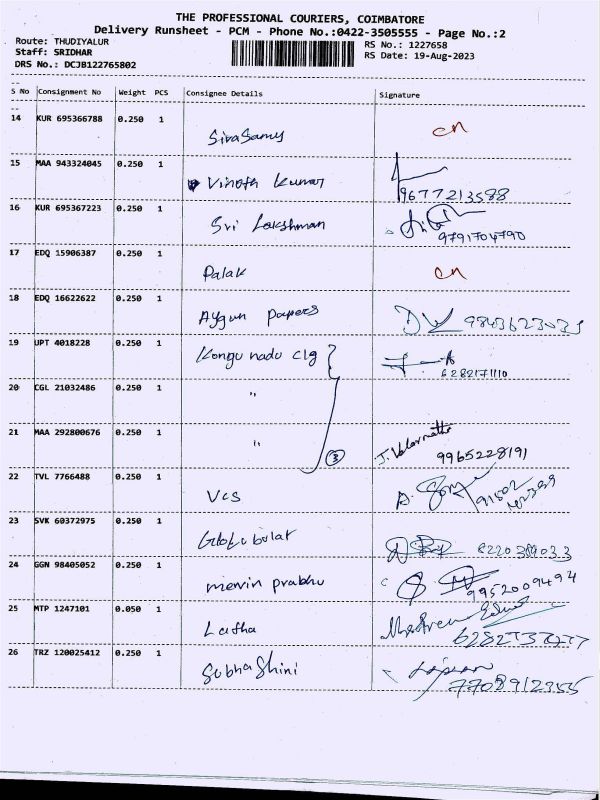 THE PROFESSIONAL COURIERS, COIMBATORE
Delivery Runsheet - PCM - Phone No.:0422-3505555 - Page No.:2
Route: THUDIYALUR
RS No.: 1227658
Staff: SRIDHAR
RS Date: 19-Aug-2023
DRS No.: DCJB122765802
S No Consignment No Weight PCS Consignee Details Signature
14 KUR 695366788 0.250 1 SivaSamy cn
15 MAA 943324045 0.250 1 Vinoth kumar
9677213588
16 KUR 695367223 0.250 1 Sri Lakshman
9791704790
17 EDQ 15906387 0.250 1 Palak cn
18 EDQ 16622622 0.250 1 Aygun papers
19 UPT 4018228 0.250 1 Kongu nadu clg
6282171110
20 CGL 21032486 0.250 1 "
21 MAA 292800676 0.250 1 " 3
9965228191
22 TVL 7766488 0.250 1 VCS
23 SVK 60372975 0.250 1
24 GGN 98405052 0.250 1 mervin prabhu
9952009494
25 MTP 1247101 0.050 1 Latha
26 TRZ 120025412 0.250 1 Subhashini
7708912355